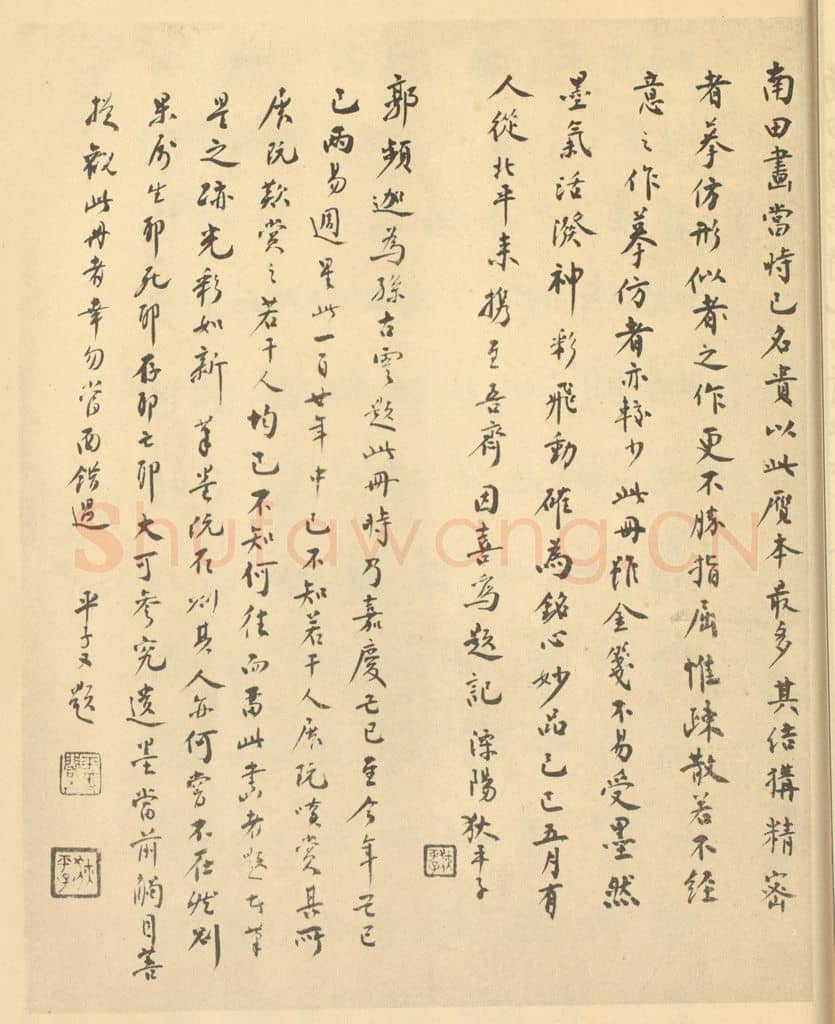 南田畫當時已名貴以此贋本最多其結構精密
者摹仿形似者之作更不勝指屈惟疎散若不經
意之作摹仿者亦較少此冊雖金箋不易受墨然
墨氣活潑神彩飛動確為銘心妙品己巳五月有
人從北平來攜至吾齋因喜為題記 溧陽狄平子
郭頻迦為孫古雲題此冊時乃嘉慶己巳至今年己巳
已兩易週星此一百廿年中已不知若干人展玩嘆賞其所
展玩歎賞之若干人均已不知何往而畫此書者題者筆
墨之跡光彩如新 筆墨既在則其人亦何嘗不在然則
果屬生耶死耶存耶亡耶大可參究遺墨當前觸目菩
提觀此冊者幸勿當面錯過 平子又題
狄平子
Shufawang.CN